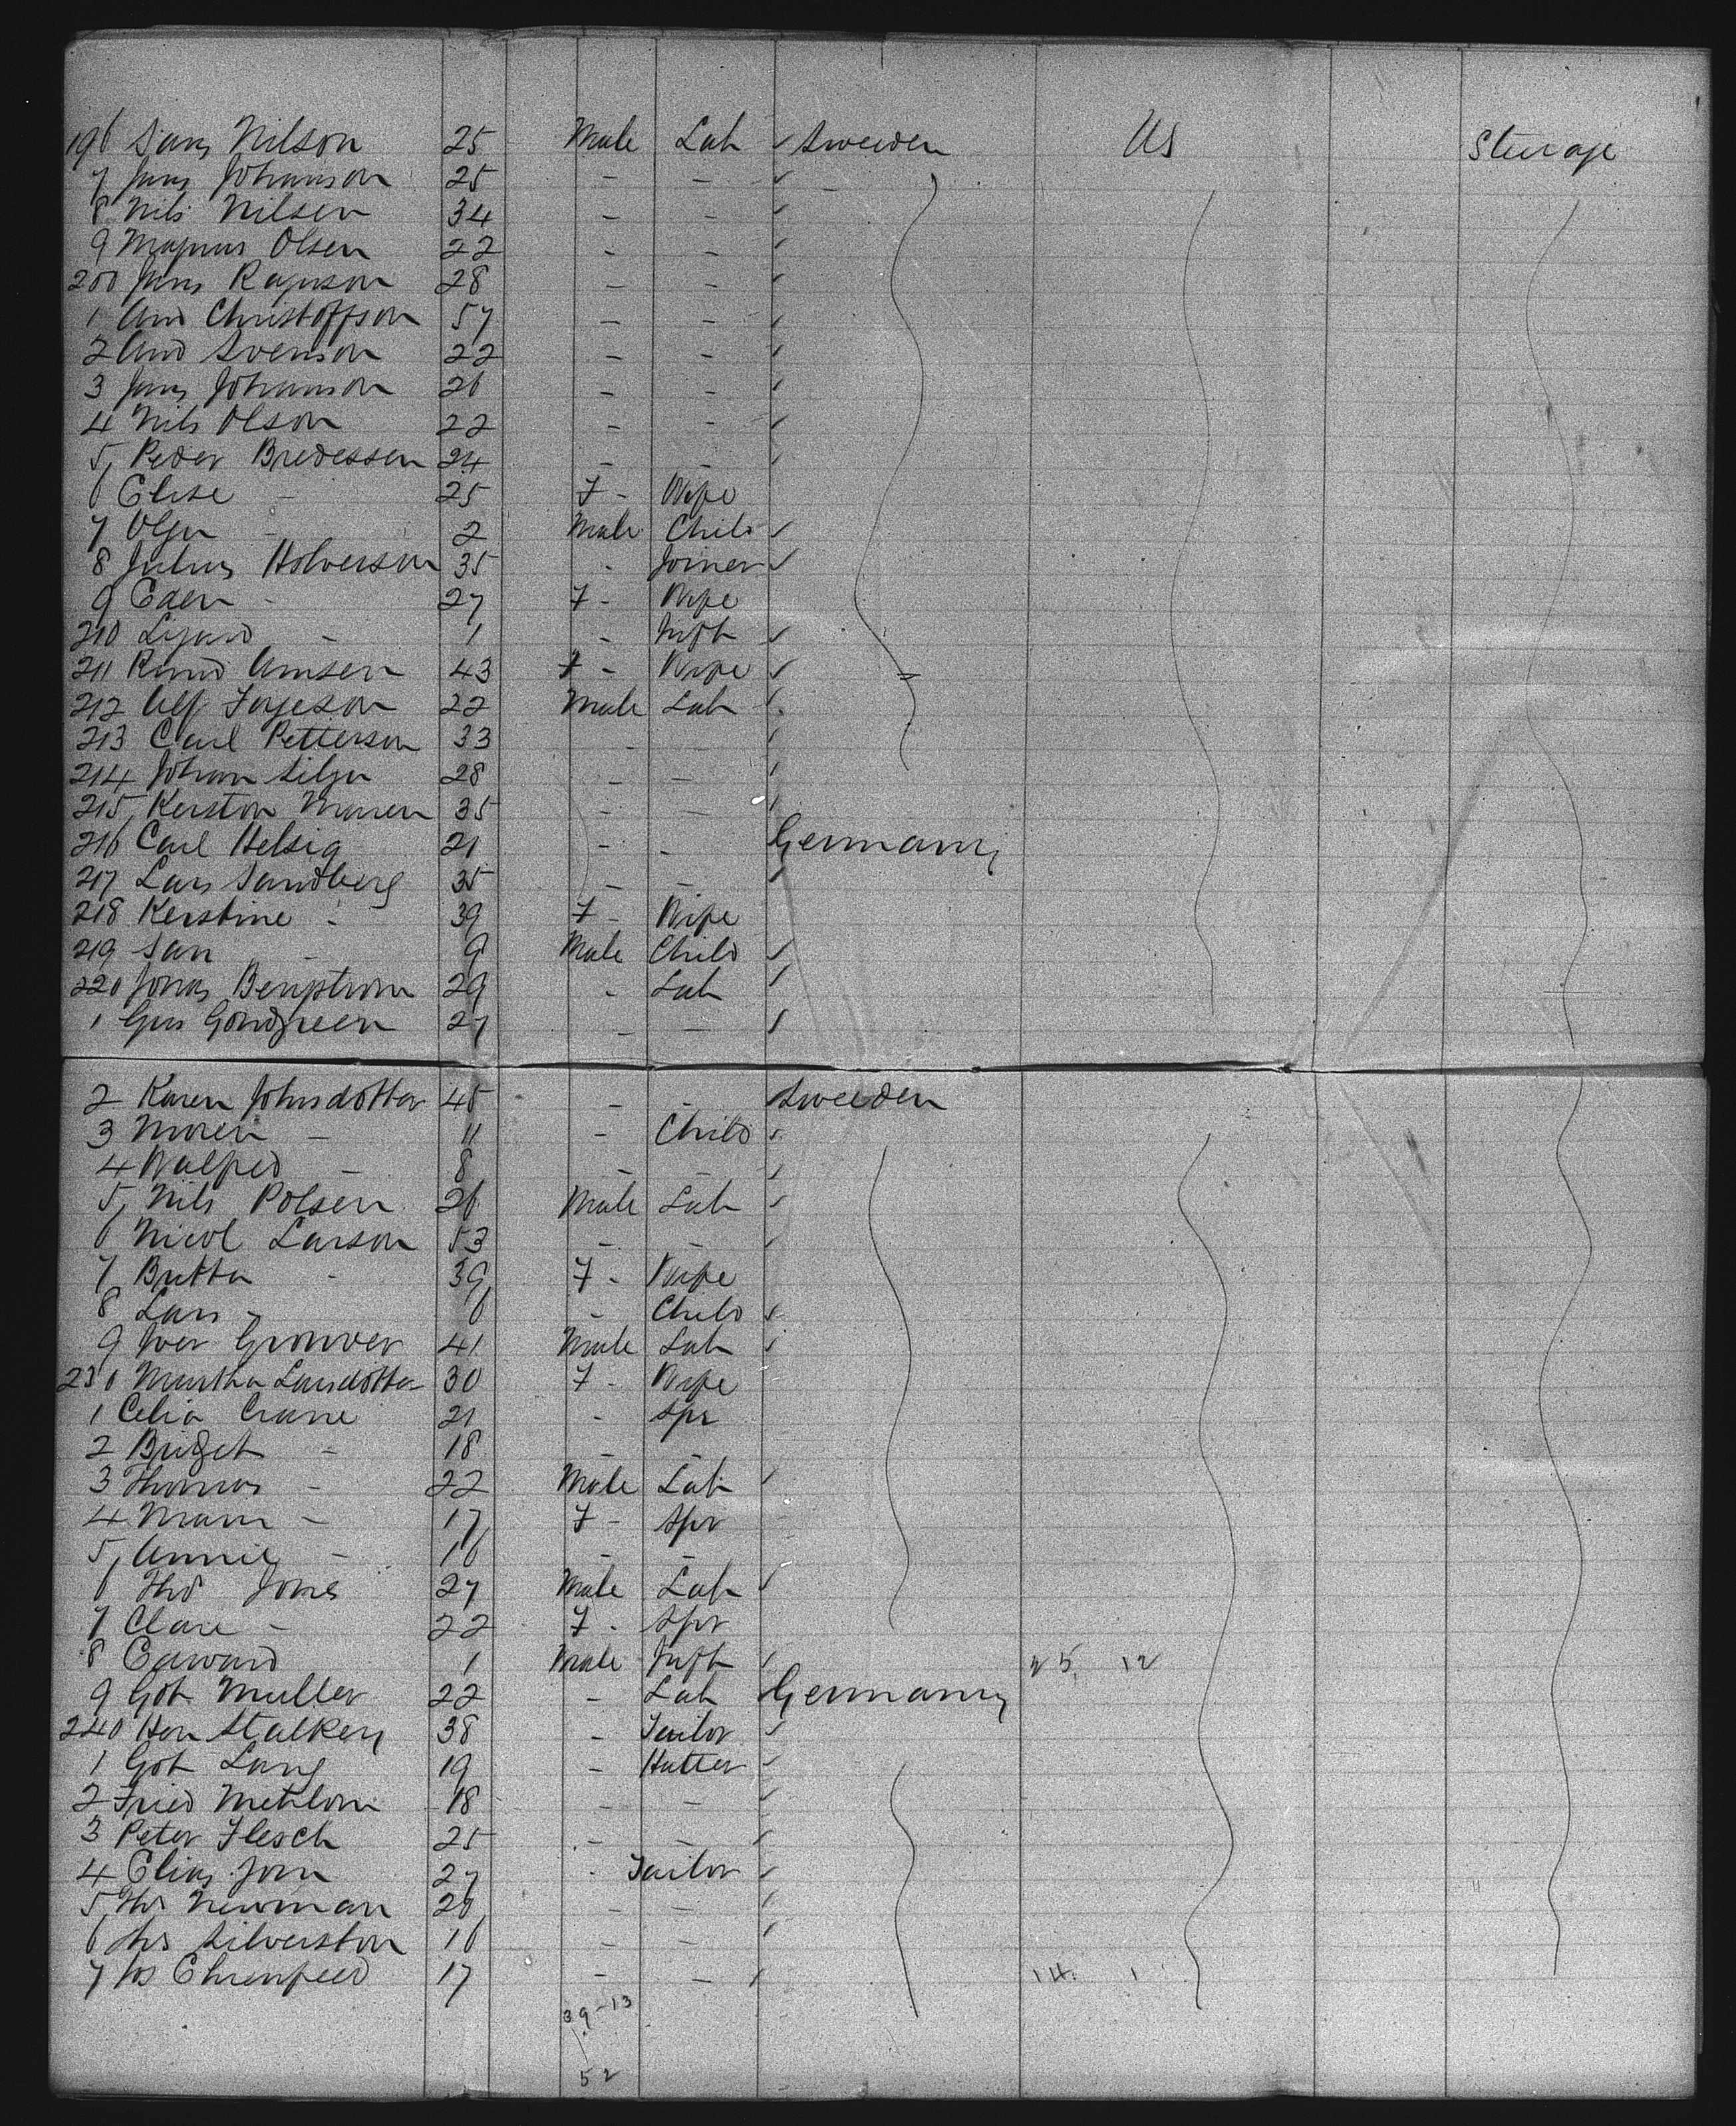 196 Jans Nilson 25 Male Lab ✓ Sweden US Steerage
7 Jans Johanson 25 - - ✓ -
8 Nils Nilsen 34 - - ✓
9 Magnus Olsen 22 - - ✓
200 Jans 28 - - ✓
1 And Christoffson 57 - - ✓
2 And Svenson 22 - - ✓
3 Jans Johanson 26 - - ✓
4 Nils Olson 22 - - ✓
5 Peder Bredessen 24 - - ✓
6 Elise - 25 F - Wife
7 Olga - 2 Male Child ✓
8 Julius Holverson 35 - Joiner ✓
9 - 27 F - Wife
210 - 1 - Inft ✓
211 43 F - Wife ✓
212 Alf 22 Male Lab ✓
213 Carl Petterson 33 - - ✓
214 Johan 28 - - ✓
215 Kerston 35 - - ✓
216 Carl Helsig 21 - - Germany
217 Lars Sandberg 35 - - ✓
218 Kerstine - 39 F - Wife
219 - 9 Male Child ✓
220 Jonas 29 - Lab ✓
1 Gus 27 - - ✓
2 Karen Johnsdotter 45 - - Sweden
3 - 11 - Child ✓
4 - 8 - - ✓
5 Nils Polsen 26 Male Lab ✓
6 Nicol Larson 53 - - ✓
7 Britta - 39 F - Wife
8 Lars - 6 - Child ✓
9 Iver 41 Male Lab ✓
230 Martha Larsdotter 30 F - Wife
1 Celia Crane 21 - Spr
2 Bridget - 18 - -
3 Thomas - 22 Male Lab ✓
4 - 17 F - Spr
5 Annie - 16 - -
6 Tho Jones 27 Male Lab ✓
7 Clare - 22 F - Spr
8 Edward 1 Male Inft ✓ 25 12
9 Got Muller 22 - Lab Germany
240 38 - Tailor ✓
1 Got Lang 19 - Hatter ✓
2 Fried 18 - - ✓
3 Peter Flesch 25 - - ✓
4 Elias 27 - Tailor ✓
5 Newman 20 - - ✓
6 Silverston 16 - - ✓
7 Jos 17 - - ✓ 14 1
39-13
52